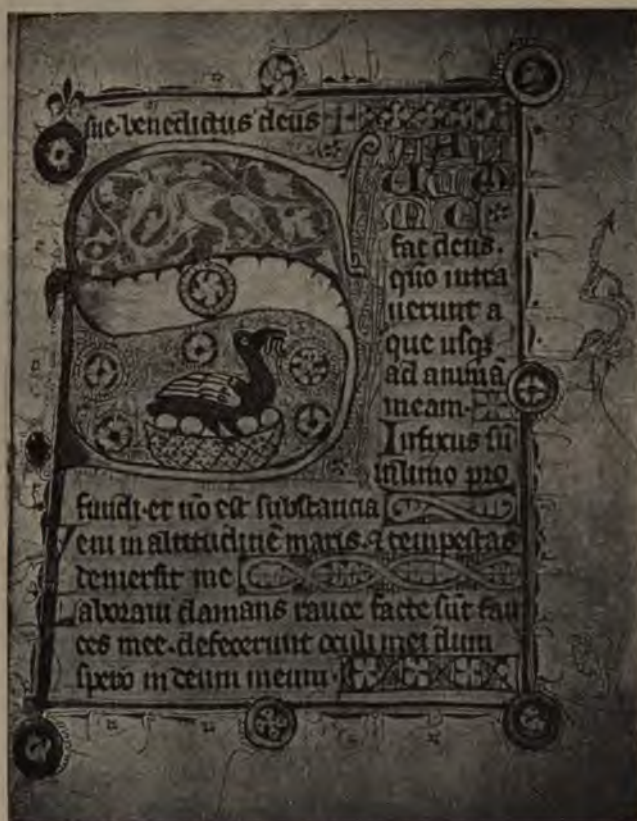 sue · benedictus deus
S
ALUUM
ME
fac deus ·
quo intra
uerunt a
que usqꝫ
ad animā
meam ·
Infixus sū
i
limo pro
fundi · et nō est substancia
Veni in altitudinē maris · ⁊ tempestas
demersit me
Laboraui clamans rauce facte sūt fau
ces mee · defecerunt oculi mei dum
spero in deum meum ·